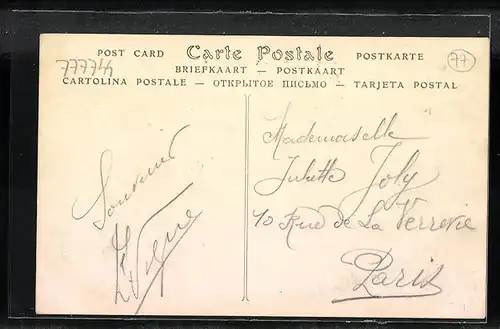 POST CARD Carte Postale POSTKARTE
BRIEFKAART — POSTKAART
CARTOLINA POSTALE — ОТКРЫТОЕ ПИСЬМО — TARJETA POSTAL
77
Souvenir
Mademoiselle
Juliette Joly
10 Rue de La Verrerie
Paris